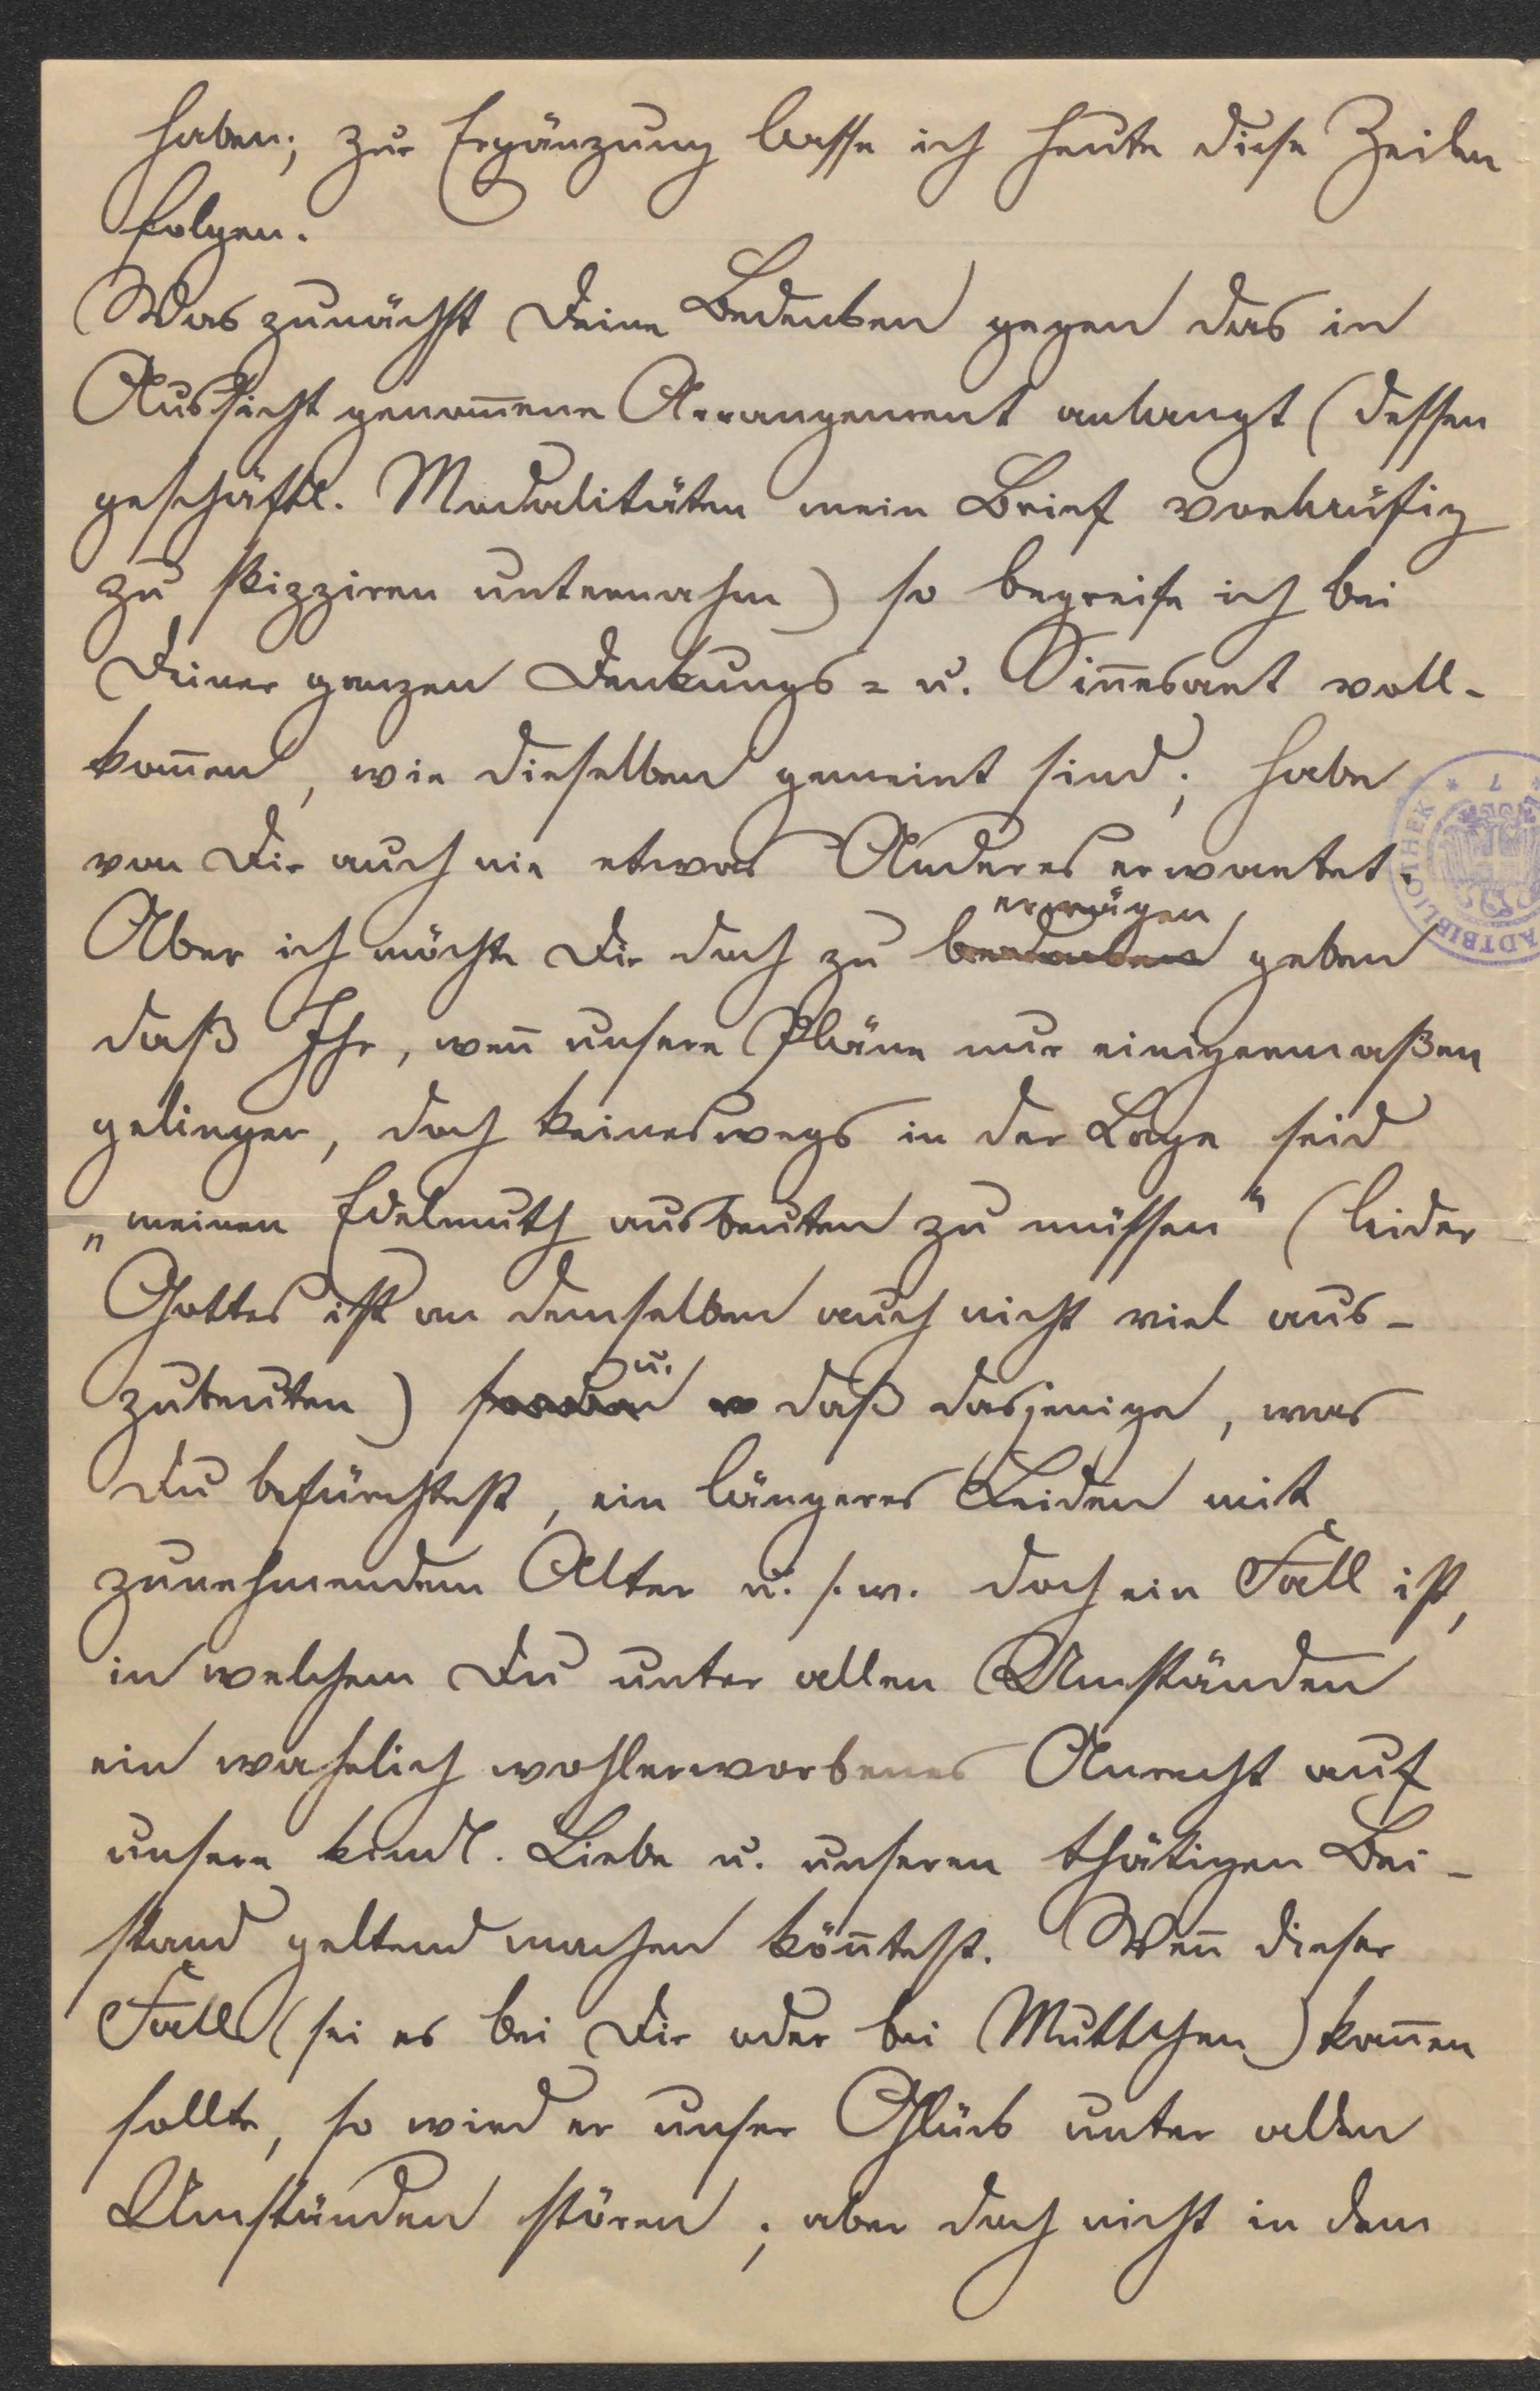 haben; zur Ergänzung lasse ich heute diese Zeilen
folgen.
Was zunächst Deine Bedenken gegen das in
Aussicht genom̄ene Arrangement anlangt (dessen
geschäftl. Modalitäten mein Brief vorläufig
zu skizziren unternahm) so begreife ich bei
Deiner ganzen Denkungs= u. Sin̄esart voll-
kom̄en, wie dieselben gemeint sind; habe
von Dir auch nie etwas Anderes erwartet.
erwägen
Aber ich möchte Dir doch zu bedenken geben
daß Ihr, wen̄ unsere Pläne nur einigermaßen
gelingen, doch keineswegs in der Lage seid
„meinen Edelmuth ausbeuten zu müssen“ (leider
Gottes ist an demselben auch nicht viel aus-
u.
zubeuten) sondern daß dasjenige, was
Du befürchtest, ein längeres Leiden mit
zunehmendem Alter u. s. w. doch ein Fall ist,
in welchem Du unter allen Umständen
ein wahrlich wohlerworbenes Anrecht auf
unsere kindl. Liebe u. unseren thätigen Bei-
stand geltend machen kön̄test. Wen̄ dieser
Fall (sei es bei Dir oder bei Muttchen) kom̄en
sollte, so wird er unser Glück unter allen
Umständen stören; aber doch nicht in dem
STADTBIBLIOTHEK